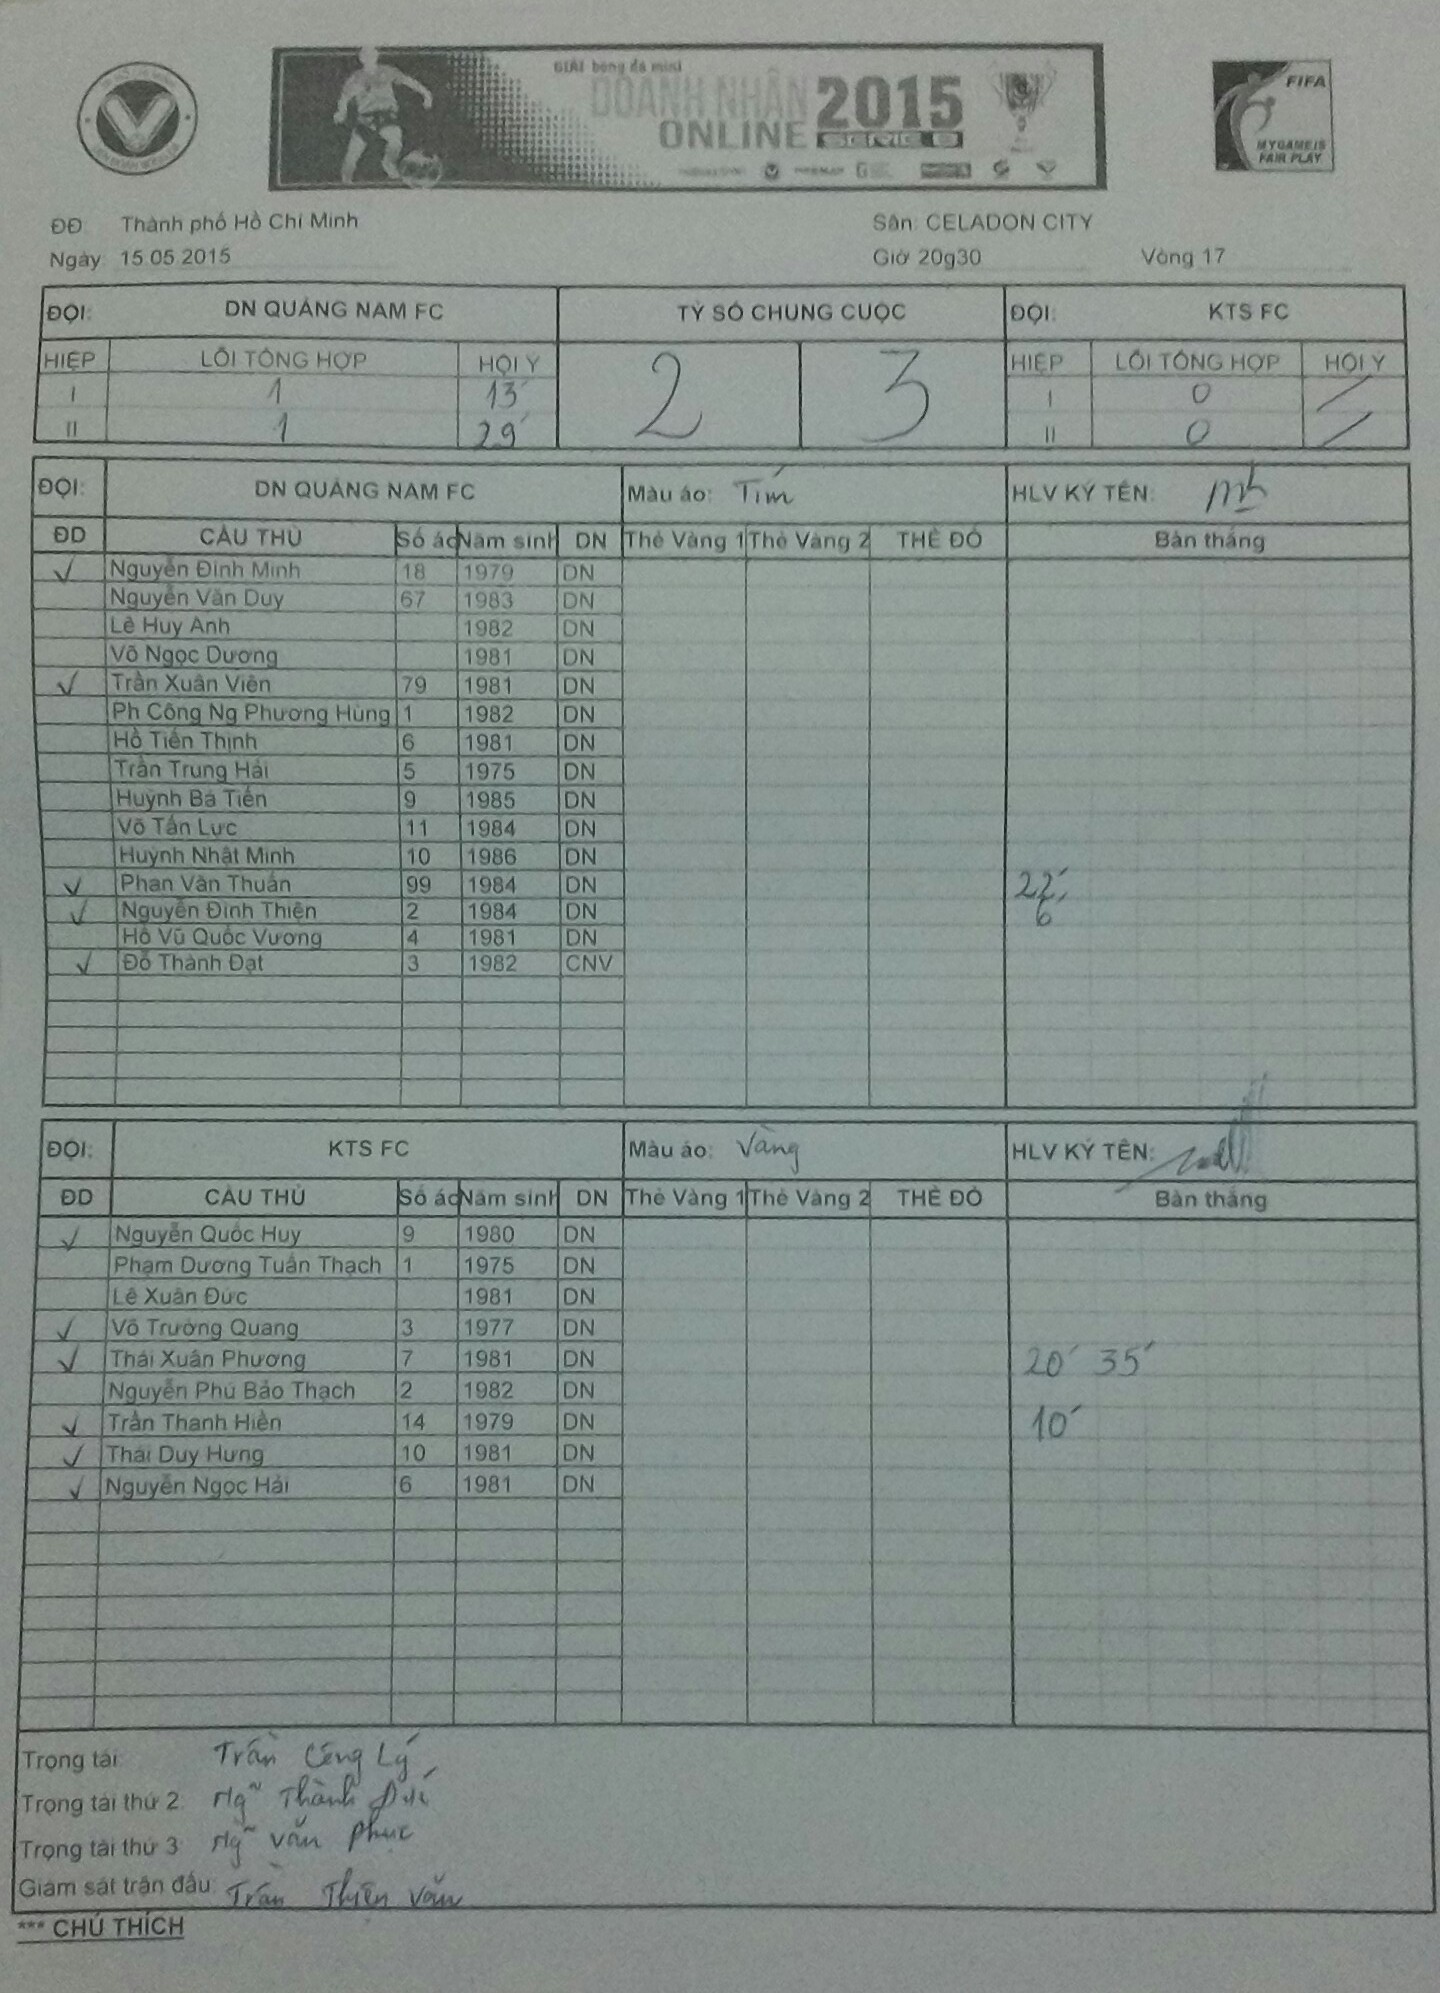 GIẢI bóng đá mini
DOANH NHÂN 2015
ONLINE SERIE B
FIFA
MY GAME IS
FAIR PLAY
ĐĐ: Thành phố Hồ Chí Minh Sân: CELADON CITY
Ngày: 15.05.2015 Giờ 20g30 Vòng 17
ĐỘI: DN QUẢNG NAM FC TỶ SỐ CHUNG CUỘC ĐỘI: KTS FC
HIỆP LỖI TỔNG HỢP HỘI Ý 2 3 HIỆP LỖI TỔNG HỢP HỘI Ý
I 1 13' I 0
II 1 29' II 0
ĐỘI: DN QUẢNG NAM FC Màu áo: Tím HLV KÝ TÊN:
ĐD CẦU THỦ Số áo Năm sinh DN Thẻ Vàng 1 Thẻ Vàng 2 THẺ ĐỎ Bàn thắng
✓ Nguyễn Đình Minh 18 1979 DN
Nguyễn Văn Duy 67 1983 DN
Lê Huy Anh 1982 DN
Võ Ngọc Dương 1981 DN
✓ Trần Xuân Viên 79 1981 DN
Ph Công Ng Phương Hùng 1 1982 DN
Hồ Tiến Thịnh 6 1981 DN
Trần Trung Hải 5 1975 DN
Huỳnh Bá Tiến 9 1985 DN
Võ Tấn Lực 11 1984 DN
Huỳnh Nhật Minh 10 1986 DN
✓ Phan Văn Thuần 99 1984 DN 22'
✓ Nguyễn Đình Thiện 2 1984 DN 6'
Hồ Vũ Quốc Vương 4 1981 DN
✓ Đỗ Thành Đạt 3 1982 CNV
ĐỘI: KTS FC Màu áo: Vàng HLV KÝ TÊN:
ĐD CẦU THỦ Số áo Năm sinh DN Thẻ Vàng 1 Thẻ Vàng 2 THẺ ĐỎ Bàn thắng
✓ Nguyễn Quốc Huy 9 1980 DN
Phạm Dương Tuấn Thạch 1 1975 DN
Lê Xuân Đức 1981 DN
✓ Võ Trường Quang 3 1977 DN
✓ Thái Xuân Phương 7 1981 DN 20' 35'
Nguyễn Phú Bảo Thạch 2 1982 DN
✓ Trần Thanh Hiền 14 1979 DN 10'
✓ Thái Duy Hưng 10 1981 DN
✓ Nguyễn Ngọc Hải 6 1981 DN
Trọng tài: Trần Công Lý
Trọng tài thứ 2: Ng~ Thành Đức
Trọng tài thứ 3: Ng~ Văn Phục
Giám sát trận đấu: Trần Thiện Văn
*** CHÚ THÍCH